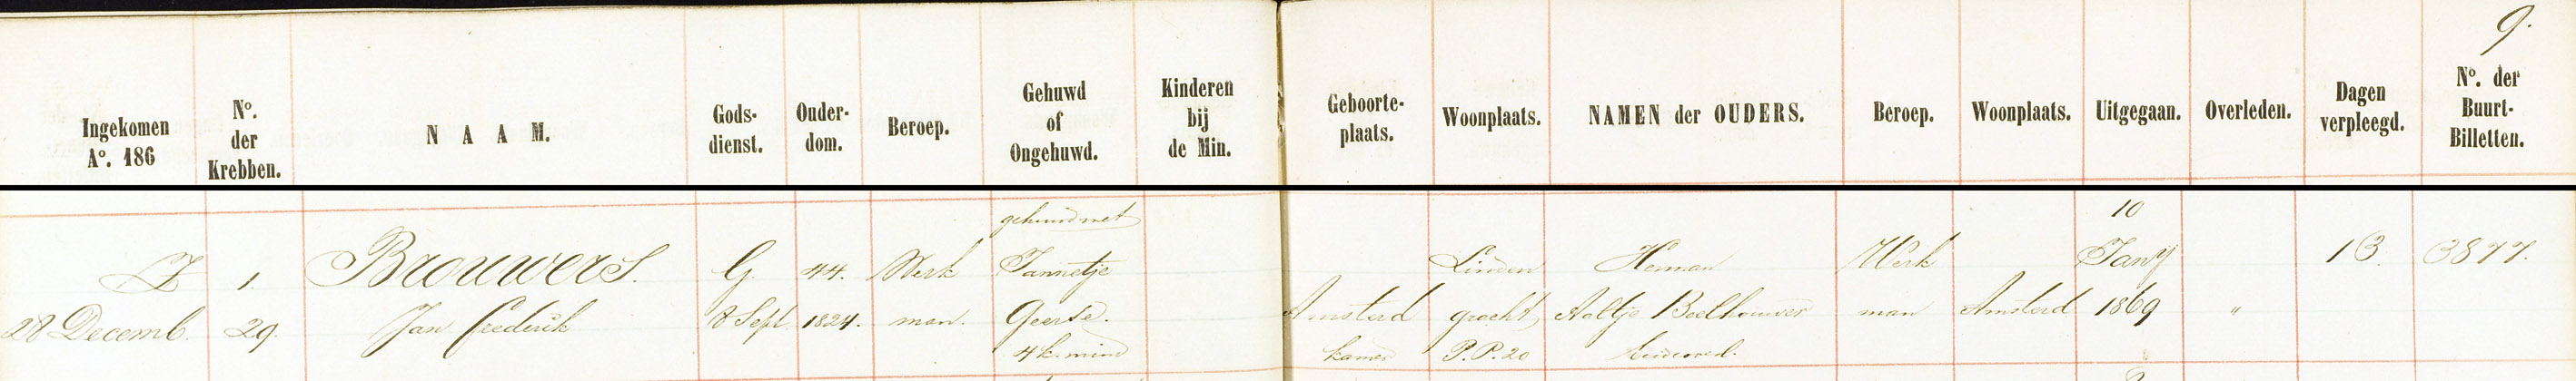 9.
Ingekomen
A°. 186
N°.
der
Krebben.
NAAM.
Gods-
dienst.
Ouder-
dom.
Beroep.
Gehuwd
of
Ongehuwd.
Kinderen
bij
de Min.
Geboorte-
plaats.
Woonplaats.
NAMEN der OUDERS.
Beroep.
Woonplaats.
Uitgegaan.
Overleden.
Dagen
verpleegd.
N°. der
Buurt-
Billetten.
Z
28 Decemb.
1.
29.
Brouwers.
Jan Frederik
G.
8 Sept.
44.
1824.
Werk
man.
gehuwd met
Jannetje
Geerse.
4 k. mind
Amsterd
kamer
Linden
gracht
P.P. 20
Herman
Aaltje Beelhouwer
Werk
man
Amsterd
10
Jany
1869
"
13.
3877.